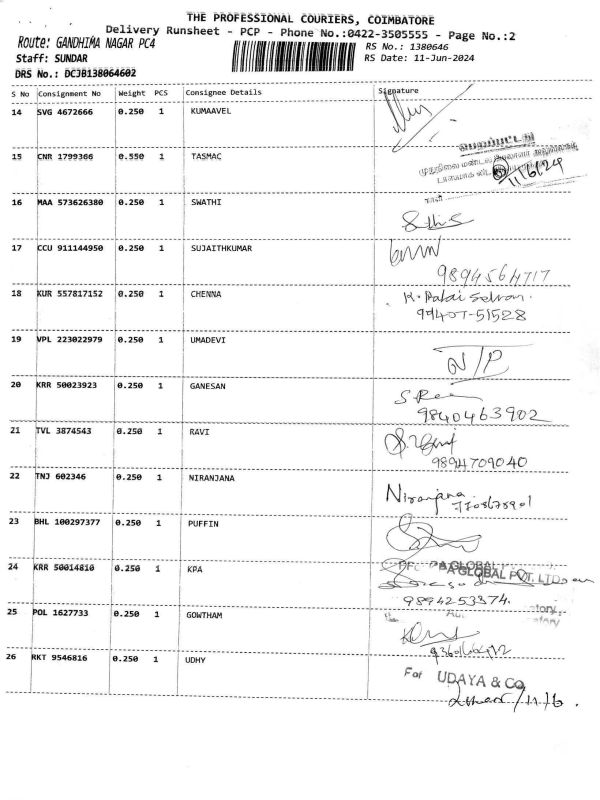 THE PROFESSIONAL COURIERS, COIMBATORE
Delivery Runsheet - PCP - Phone No.:0422-3505555 - Page No.:2
Route: GANDHIMA NAGAR PC4
RS No.: 1380646
Staff: SUNDAR
RS Date: 11-Jun-2024
DRS No.: DCJB138064602
S No Consignment No Weight PCS Consignee Details Signature
14 SVG 4672666 0.250 1 KUMAAVEL
15 CNR 1799366 0.550 1 TASMAC
11/6/24
16 MAA 573626380 0.250 1 SWATHI
17 CCU 911144950 0.250 1 SUJAITHKUMAR
9894564717
18 KUR 557817152 0.250 1 CHENNA
99407-51528
19 VPL 223022979 0.250 1 UMADEVI
N/P
20 KRR 50023923 0.250 1 GANESAN
9840463902
21 TVL 3874543 0.250 1 RAVI
9894709040
22 TNJ 602346 0.250 1 NIRANJANA
Niranjana
23 BHL 100297377 0.250 1 PUFFIN
24 KRR 50014810 0.250 1 KPA
A GLOBAL PVT. LTD
9894253374.
25 POL 1627733 0.250 1 GOWTHAM
26 RKT 9546816 0.250 1 UDHY
For UDAYA & Co
11/6.